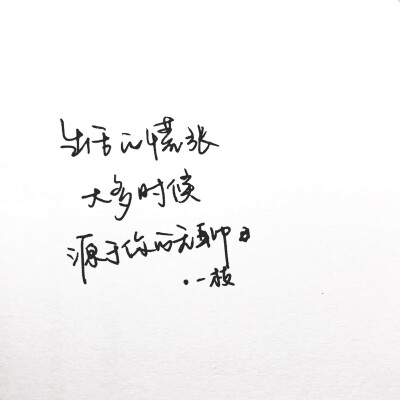 生活的慌张
大多时候
源于你的无聊。
·一枝